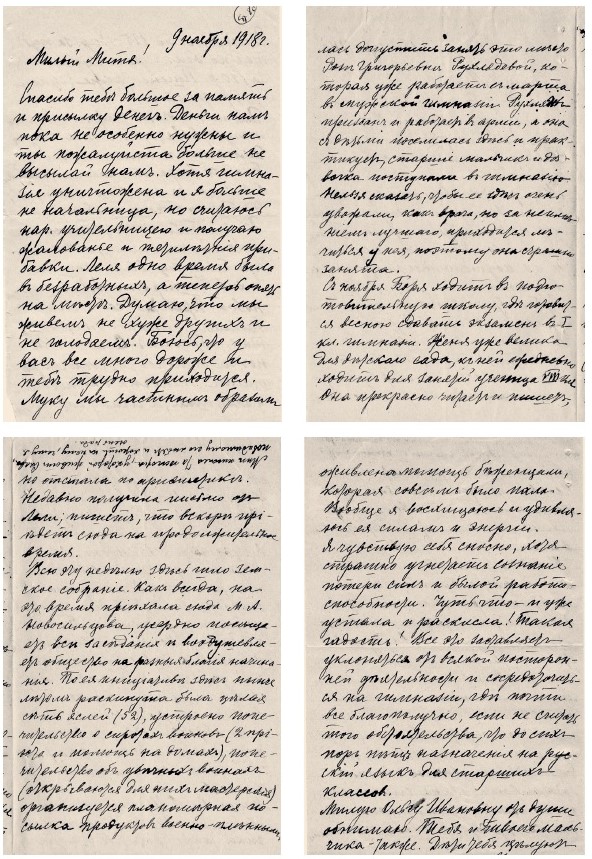 9 ноября 1918 г.
Милый Митя!
Спасибо тебе большое за память
и присылку денег. Деньги нам
пока не особенно нужны и
ты пожалуйста больше не
высылай нам. Хотя гимна-
зiя уничтожена и я больше
не начальница, но считаюсь
нар. учительницею и получаю
жалованье и
бавки. Леля одно время была
в безработных, а теперь опять
на месте. Думаю, что мы
живем не хуже других и
не голодаем. Боюсь, что у
вас все много дороже и
тебе трудно приходится.
Муку мы частным образом
лась допустить занять это место
Розе Григорьевне, ко-
торая уже работает с марта
в мужской гимназiи.
призван и работает в армии, а она
с детьми поселилась здесь и прак-
тикует, старшие мальчик и де-
вочка поступили в гимназию
Нельзя сказать, чтобы ее здесь очень
уважали, как врача, но за неиме-
нием лучшего, приходится ле-
читься у нея, поэтому она страшно
занята.
С ноября Боря ходит в подго-
товительную школу, где готовит-
ся весною сдавать экзамен в I
кл. гимназiи. Женя уже велика
для детского сада, к ней ежедневно
ходит для занятiй ученица VIII кл.
Она прекрасно читает и пишет,
но отстала по арифметике.
Недавно получила письмо от
Лели; пишет, что вскоре прi-
едет сюда на продолжительное
время.
Всю эту неделю здесь шло зем-
ское собранiе. Как всегда, на
это время приехала сюда М. А.
Новосильцова, усердно посеща-
ет все заседанiя и воодушевля-
ет общество на разныя благiя начина-
нiя. По ея инициативе здесь ныне
летом раскинута была целая
сеть яслей (52), устроено попе-
чительство о сиротах воинов (2 прi-
юта и помощь на домах), попе-
чительство об увечных воинах
(открываются для них мастерскiя)
организуется планомерная по-
сылка продуктов военно-пленным,
оживлена помощь беженцам,
которая совсем было пала.
Вообще я восхищаюсь и удивля-
юсь ея силам и энергiи.
Я чувствую себя сносно, хотя
страшно угнетает сознанiе
потери сил и былой работо-
способности. Чуть что – и уже
устала и раскисла! Такая
гадость! Все это заставляет
уклоняться от всякой посторон-
ней деятельности и сосредоточить-
ся на гимназiи, где почти
все благополучно, если не считать
того обстоятельства, что до сих
пор нет назначенiя на рус-
скiй язык для старших
классов.
Милую Ольгу Ивановну от души
обнимаю. Тебя и твоего маль-
чика – также. Дети тебя целуют